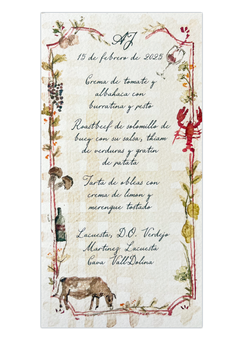 AJ
15 de febrero de 2025
Crema de tomate y
albahaca con
burratina y pesto
Roastbeef de solomillo de
buey con su salsa, thiam
de verduras y gratín
de patata
Tarta de obleas con
crema de limón y
merengue tostado
Lacuesta, D.O. Verdejo
Martínez Lacuesta
Cava Vall·Dolina